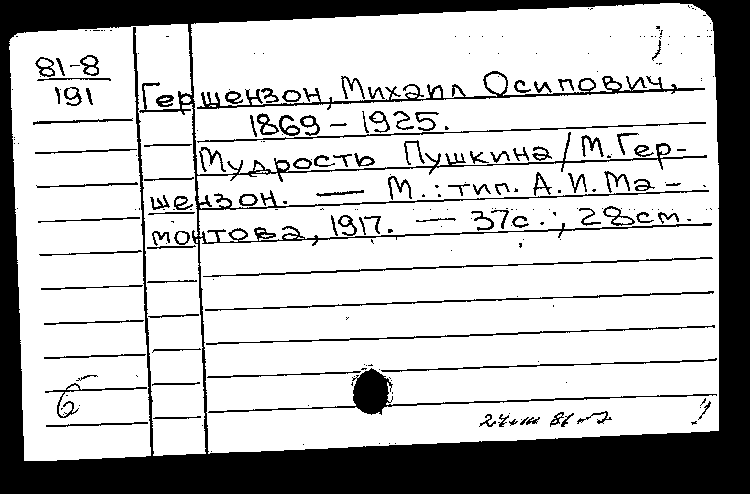 81-8
191
Гершензон, Михаил Осипович,
1869 – 1925.
Мудрость Пушкина / М. Гер-
шензон. — М.: тип. А. И. Ма-
монтова, 1917. — 37с.; 28ст.
6